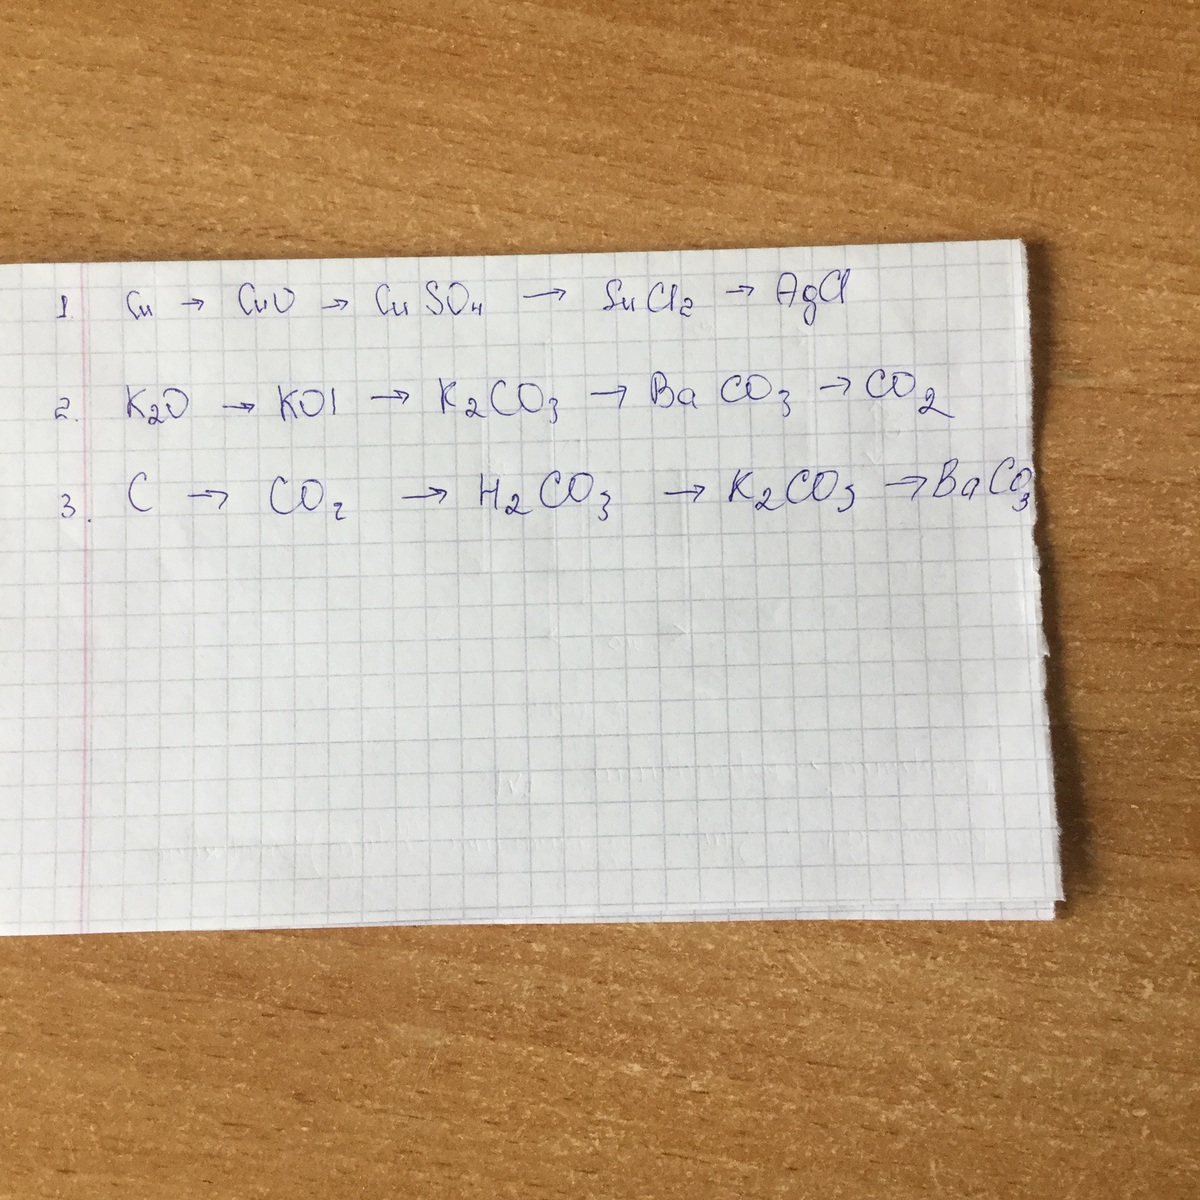 1. Cu → CuO → CuSO₄ → SuCl₂ → AgCl
2. K₂O → KOI → K₂CO₃ → BaCO₃ → CO₂
3. C → CO₂ → H₂CO₃ → K₂CO₃ → BaCO₃